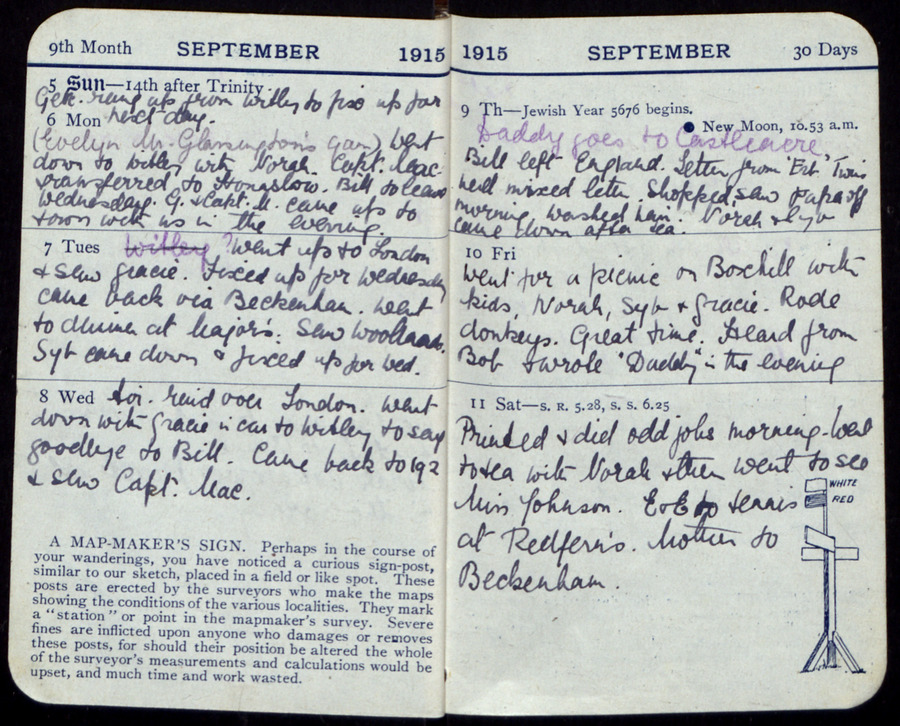 9th Month SEPTEMBER 1915
5 Sun—14th after Trinity
rang up from Witley to fix up for
6 Mon next day.
(Evelyn M. Glassington's gun) Went
down to Witley with Norah. Capt. Mac.
transferred to Hounslow. Bill to leave
Wednesday. G. & Capt. M. came up to
town with us in the evening.
7 Tues Witley? Went up to London
& saw Gracie. Fixed up for Wednesday
came back via Beckenham. Went
to dinner at Major's. Saw
Syb came down & fixed up for Wed.
8 Wed Air raid over London. Went
down with Gracie in car to Witley to say
goodbye to Bill. Came back to 192
& saw Capt. Mac.
A MAP-MAKER'S SIGN. Perhaps in the course of
your wanderings, you have noticed a curious sign-post,
similar to our sketch, placed in a field or like spot. These
posts are erected by the surveyors who make the maps
showing the conditions of the various localities. They mark
a "station" or point in the mapmaker's survey. Severe
fines are inflicted upon anyone who damages or removes
these posts, for should their position be altered the whole
of the surveyor's measurements and calculations would be
upset, and much time and work wasted.
1915 SEPTEMBER 30 Days
9 Th—Jewish Year 5676 begins.
● New Moon, 10.53 a.m.
Daddy goes to Castlemere.
Bill left England. Letter from Twin
mixed letter. Shopped, saw Papa off
morning, washed Norah & Syb
came down after tea.
10 Fri
Went for a picnic on Boxhill with
kids, Norah, Syb & Gracie. Rode
donkeys. Great time. Heard from
Bob & wrote "Daddy" in the evening
11 Sat—S. R. 5.28, S. S. 6.25
Printed & did odd jobs morning. Went
to tea with Norah & then went to see
Miss Johnson. E & E to tennis
at Redfern's. Mother to
Beckenham.
WHITE
RED